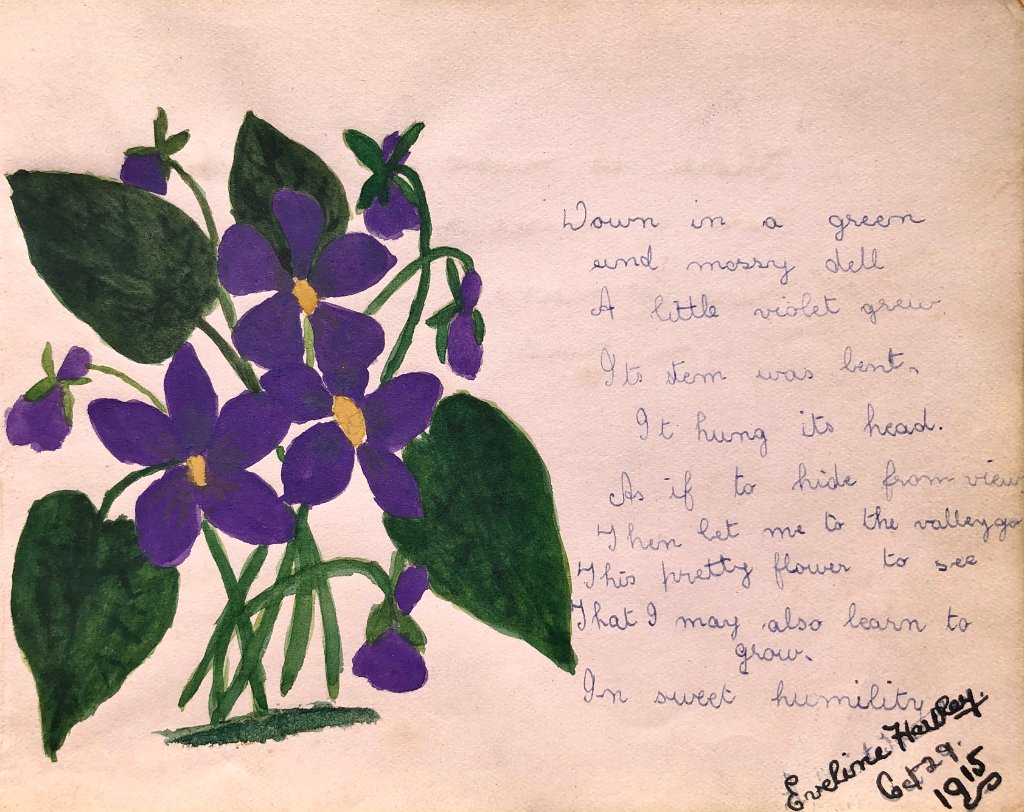 Down in a green
and mossy dell
A little violet grew
Its stem was bent.
It hung its head.
As if to hide from view
Then let me to the valley go
This pretty flower to see
That I may also learn to
grow.
In sweet humility
Eveline
Oct 29.
1915